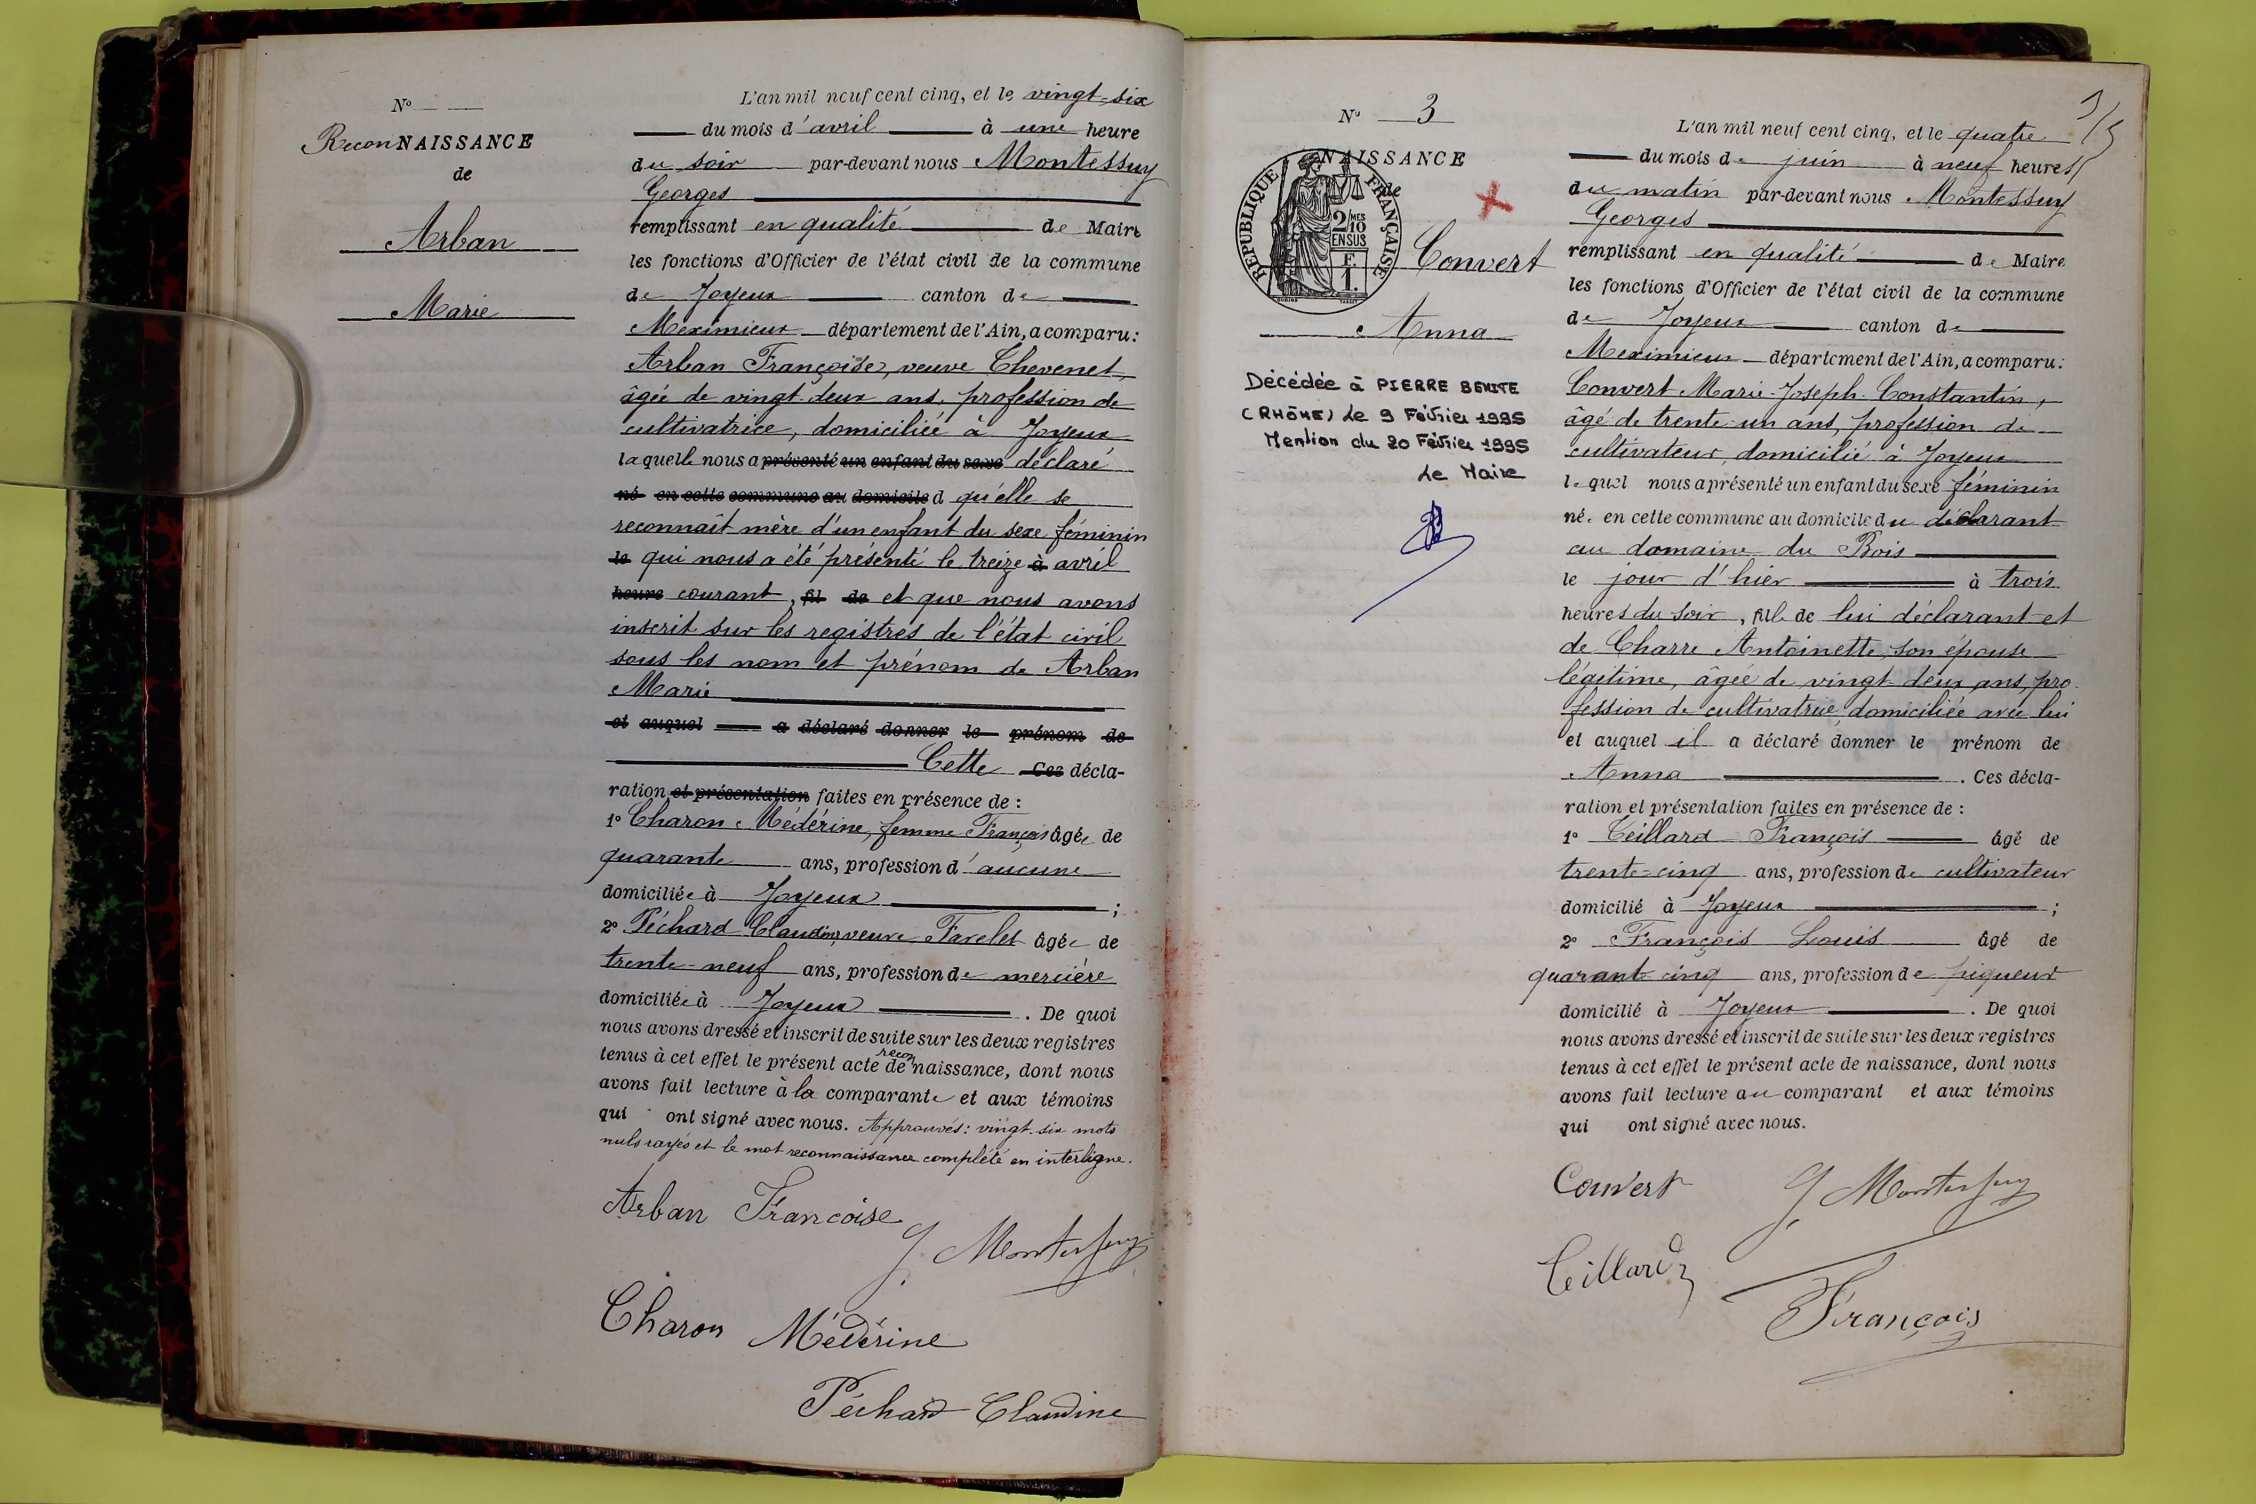 N°
ReconNAISSANCE
de
Arban
Marie
L'an mil neuf cent cinq, et le vingt-six
du mois d'avril à une heure
du soir par-devant nous Montessuy
Georges
remplissant en qualité de Maire
les fonctions d'Officier de l'état civil de la commune
de Joyeux canton de
Meximieux département de l'Ain, a comparu:
Arban Françoise, veuve Chevenet,
âgée de vingt-deux ans, profession de
cultivatrice, domiciliée à Joyeux
laquelle nous a présenté un enfant du sexe déclaré
né en cette commune au domicile d qu'elle se
reconnaît mère d'un enfant du sexe féminin
le qui nous a été présenté le treize à avril
heure courant, fil de et que nous avons
inscrit sur les registres de l'état civil
sous les nom et prénom de Arban
Marie
et auquel a déclaré donner le prénom de
Cette Ces décla-
ration et présentation faites en présence de :
1° Charon Médérine, femme François âgée de
quarante ans, profession d'aucune
domiciliée à Joyeux ;
2° Péchard Claudine, veuve Farelet âgée de
trente-neuf ans, profession de mercière
domiciliée à Joyeux . De quoi
nous avons dressé et inscrit de suite sur les deux registres
tenus à cet effet le présent acte de reconnaissance, dont nous
avons fait lecture à la comparante et aux témoins
qui ont signé avec nous. Approuvés: vingt-six mots
nuls rayés et le mot reconnaissance complété en interligne.
Arban Francoise
G. Montessuy
Charon Médérine
Péchard Claudine
N° 3
NAISSANCE
de
RÉPUBLIQUE FRANÇAISE
2/10 MES
EN SUS
F.
1.
Convert
Anna
Décédée à PIERRE BENITE
(RHÔNE) le 9 Février 1995
Mention du 20 Février 1995
Le Maire
L'an mil neuf cent cinq, et le quatre
du mois de juin à neuf heures
du matin par-devant nous Montessuy
Georges
remplissant en qualité de Maire
les fonctions d'Officier de l'état civil de la commune
de Joyeux canton de
Meximieux département de l'Ain, a comparu:
Convert Marie-Joseph-Constantin,
âgé de trente-un ans, profession de
cultivateur, domicilié à Joyeux
lequel nous a présenté un enfant du sexe féminin
née en cette commune au domicile du déclarant
au domaine du Bois
le jour d'hier à trois
heures du soir, fille de lui déclarant et
de Charre Antoinette, son épouse
légitime, âgée de vingt-deux ans, pro-
fession de cultivatrice, domiciliée avec lui
et auquel il a déclaré donner le prénom de
Anna . Ces décla-
ration et présentation faites en présence de :
1° Teillard François âgé de
trente-cinq ans, profession de cultivateur
domicilié à Joyeux ;
2° François Louis âgé de
quarante cinq ans, profession de piqueur
domicilié à Joyeux . De quoi
nous avons dressé et inscrit de suite sur les deux registres
tenus à cet effet le présent acte de naissance, dont nous
avons fait lecture au comparant et aux témoins
qui ont signé avec nous.
Convert
G. Montessuy
Teillard
François